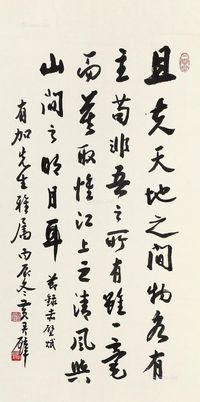 且夫天地之間物各有
主苟非吾之所有雖一毫
而莫取惟江上之清風與
山間之明月耳 節錄赤壁賦
有加先生雅屬 丙辰冬 黃君璧